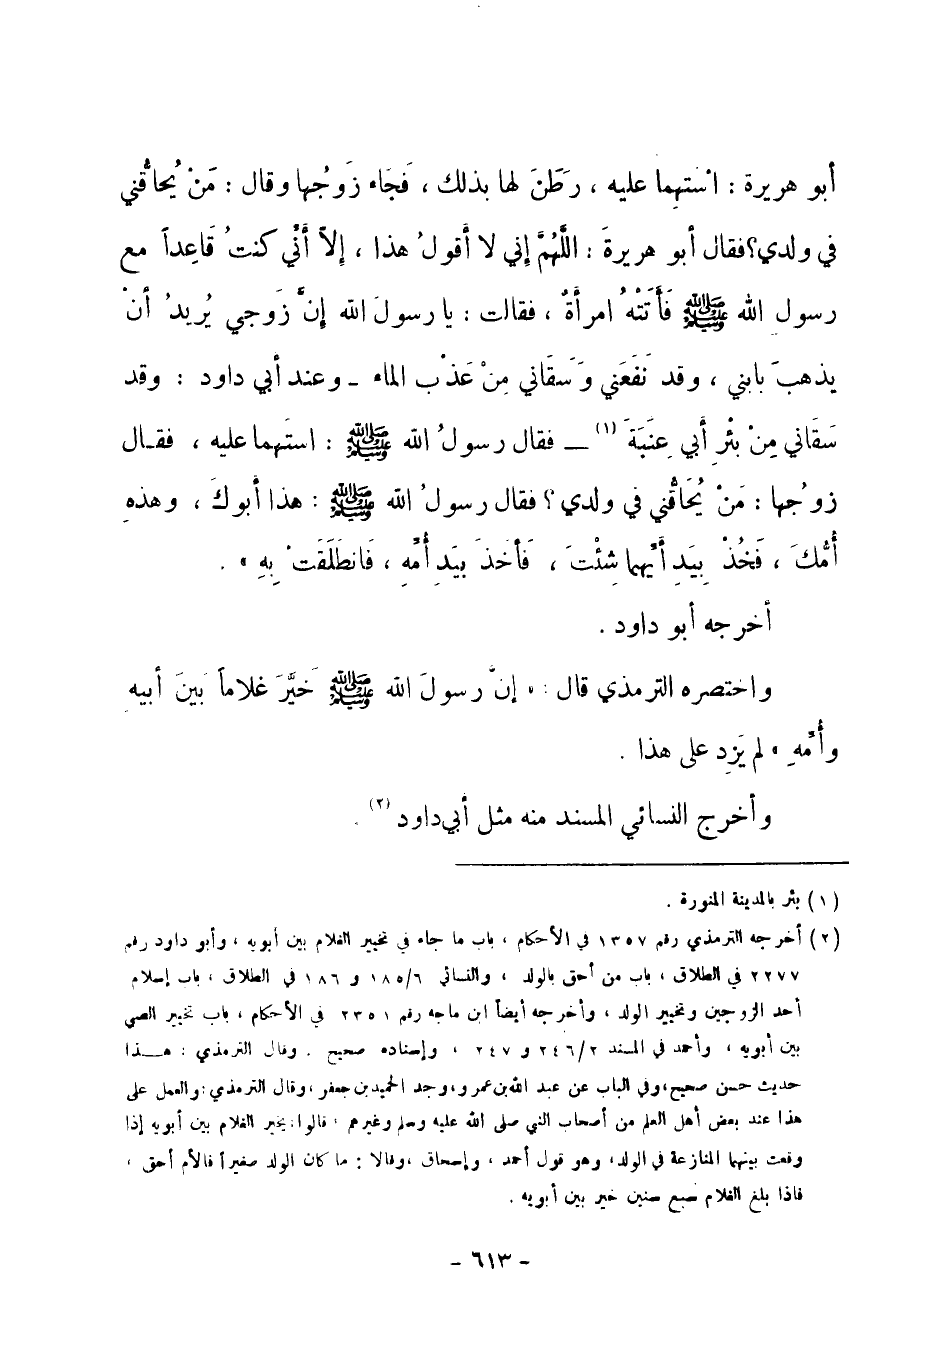 أبو هريرة : اسْتهِما عليه ، رَطَنَ لها بذلك ، فَجَاء زَوْجُها وقال : مَنْ يُحاقُّني
في ولدي؟ فقال أبو هريرةَ : اللَّهُمَّ إني لا أقولُ هذا ، إلاَّ أَنِّي كنتُ قَاعِداً مع
رسول الله ﷺ فَأَتَتْهُ امرأةٌ ، فقالت : يا رسولَ الله إنَّ زَوجي يُريدُ أنْ
يذهبَ بابني ، وقد نَفَعَني وَسَقَاني مِنْ عَذْب الماء ـ وعند أبي داود : وقد
سَقَاني مِنْ بئْرِ أَبي عِنَبَةَ (١) ــ فقال رسولُ الله ﷺ : استَهِما عليه ، فقـال
زوْجُها : مَنْ يُحَاقُّني في ولدي ؟ فقال رسولُ الله ﷺ : هذا أبوكَ ، وهذهِ
أُمُّكَ ، فَخُذْ بِيَدِ أيِّهِما شِئْتَ ، فَأخَذَ بيَدِ أُمِّهِ ، فَانطَلَقَتْ بِهِ » .
أخرجه أبو داود .
واختصره الترمذي قال : « إنَّ رسولَ الله ﷺ خَيَّرَ غلاماً بَينَ أبيهِ
وأُمِّهِ » لم يَزِد على هذا .
وأخرج النسائي المسند منه مثل أبي داود (٢) .
(١) بئر بالمدينة المنورة .
(٢) أخرجه الترمذي رقم ١٣٥٧ في الأحكام ، باب ما جاء في تخيير الغلام بين أبويه ، وأبو داود رقم
٢٢٧٧ في الطلاق ، باب من أحق بالولد ، والنسائي ١٨٥/٦ و ١٨٦ في الطلاق ، باب إسلام
أحد الزوجين وتخيير الولد ، وأخرجه أيضاً ابن ماجه رقم ٢٣٥١ في الأحكام ، باب تخيير الصبي
بين أبويه ، وأحمد في المسند ٢٤٦/٢ و ٢٤٧ ، وإسناده صحيح . وقال الترمذي : هـــذا
حديث حسن صحيح، وفي الباب عن عبد الله بن عمرو، وجد الحميد بن جعفر ، وقال الترمذي : والعمل على
هذا عند بعض أهل العلم من أصحاب النبي صلى الله عليه وسلم وغيرهم ، قالوا: يخير الغلام بين أبويه إذا
وقعت بينهما المنازعة في الولد، وهو قول أحمد ، وإسحاق ، وقالا : ما كان الولد صغيراً فالأم أحق ،
فاذا بلغ الغلام سبع سنين خير بين أبويه .
- ٦١٣ -